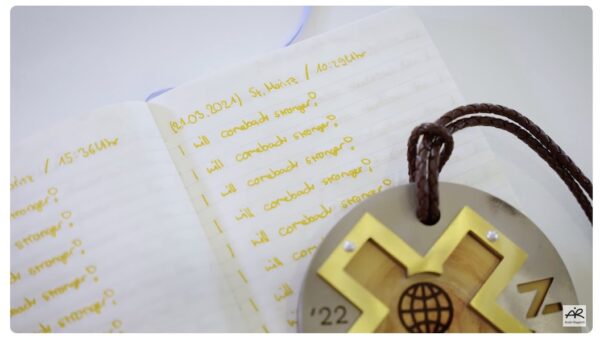 / 15:36Uhr
stronger!
stronger!
stronger!
back stronger!
back stronger!
(21.03.2021) St. Moritz / 10:29Uhr
I will comeback stronger!
I will comeback stronger!
I will comeback stronger!
I will comeback stronger!
I will comeback stronger!
I will comeback
I will
will
'22